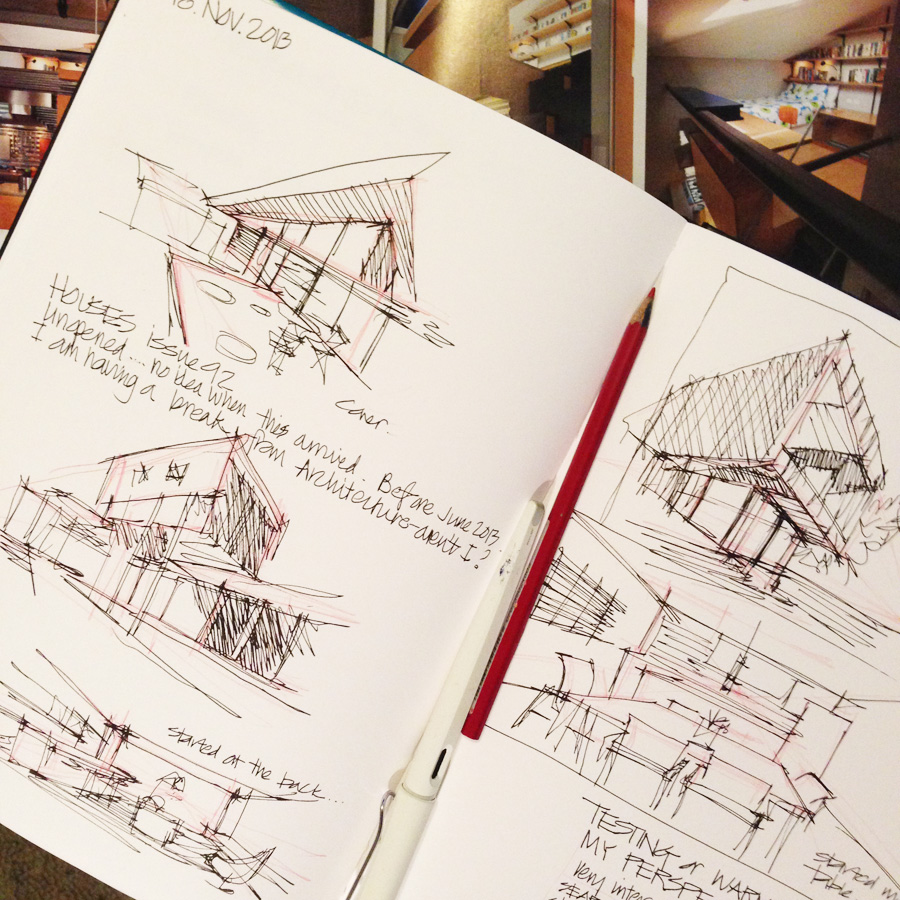 18. NOV. 2013
Cover..
HOUSES issue 92
unopened.... no idea when this arrived. Before June 2013.
I am having a break from Architecture - aren't I?
started at the back...
TESTING or WARM
MY PERSPE
very inter
started w
table